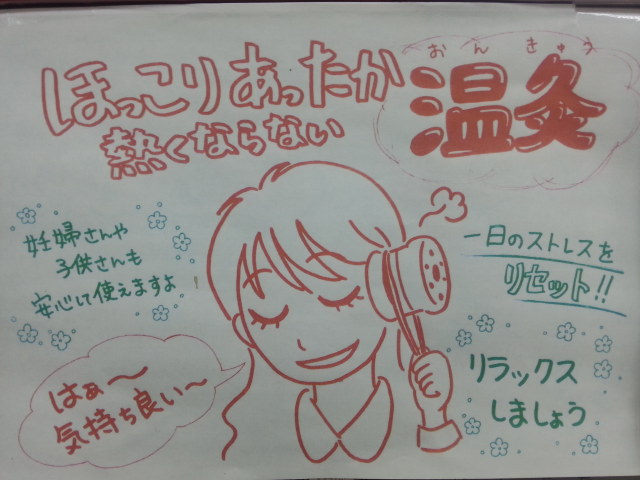 ほっこりあったか
熱くならない
おんきゅう
温灸
妊婦さんや
子供さんも
安心して使えますよ
一日のストレスを
リセット!!
リラックス
しましょう
はぁ〜
気持ち良い〜